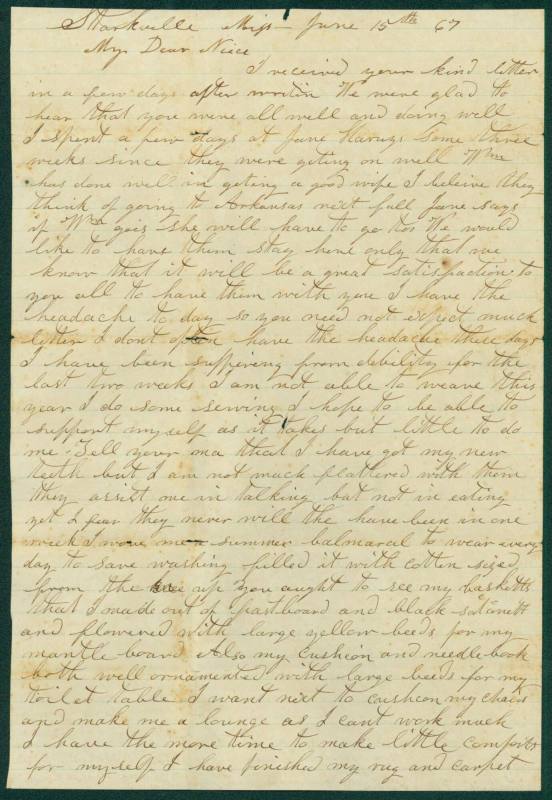 Starkville Miss June 15th 67
My Dear Niece
I received your kind letter
in a few days after writin We were glad to
hear that you were all well and doing well
I spent a few days at Jane Harvys some three
weeks since they were geting on well Wm
has done well in geting a good wife I beleive they
think of going to Arkansas next fall Jane says
if Wm goes she will have to go too We would
like to have them stay here only that we
know that it will be a great satisfaction to
you all to have them with you I have the
headache to day so you need not expect much
letter I dont often have the headache these days
I have been suffering from debility for the
last two weeks I am not able to weave this
year I do some sewing I hope to be able to
support myself as it takes but little to do
me Tell your ma that I have got my new
teeth but I am not much flattered with them
they assist me in talking but not in eating
yet I fear they never will the have been in one
week I wove me a summer balmaral to wear every
day to save washing filled it with cotten sized
from the up you aught to see my basketts
that I made out of pastboard and black satinett
and flowered with large yellow beeds for my
mantle board Also my cushion and needle book
both well ornamented with large beeds for my
toilet table I want next to cushion my chairs
and make me a lounge as I cant work much
I have the more time to make little comforts
for myself I have finished my rug and carpet